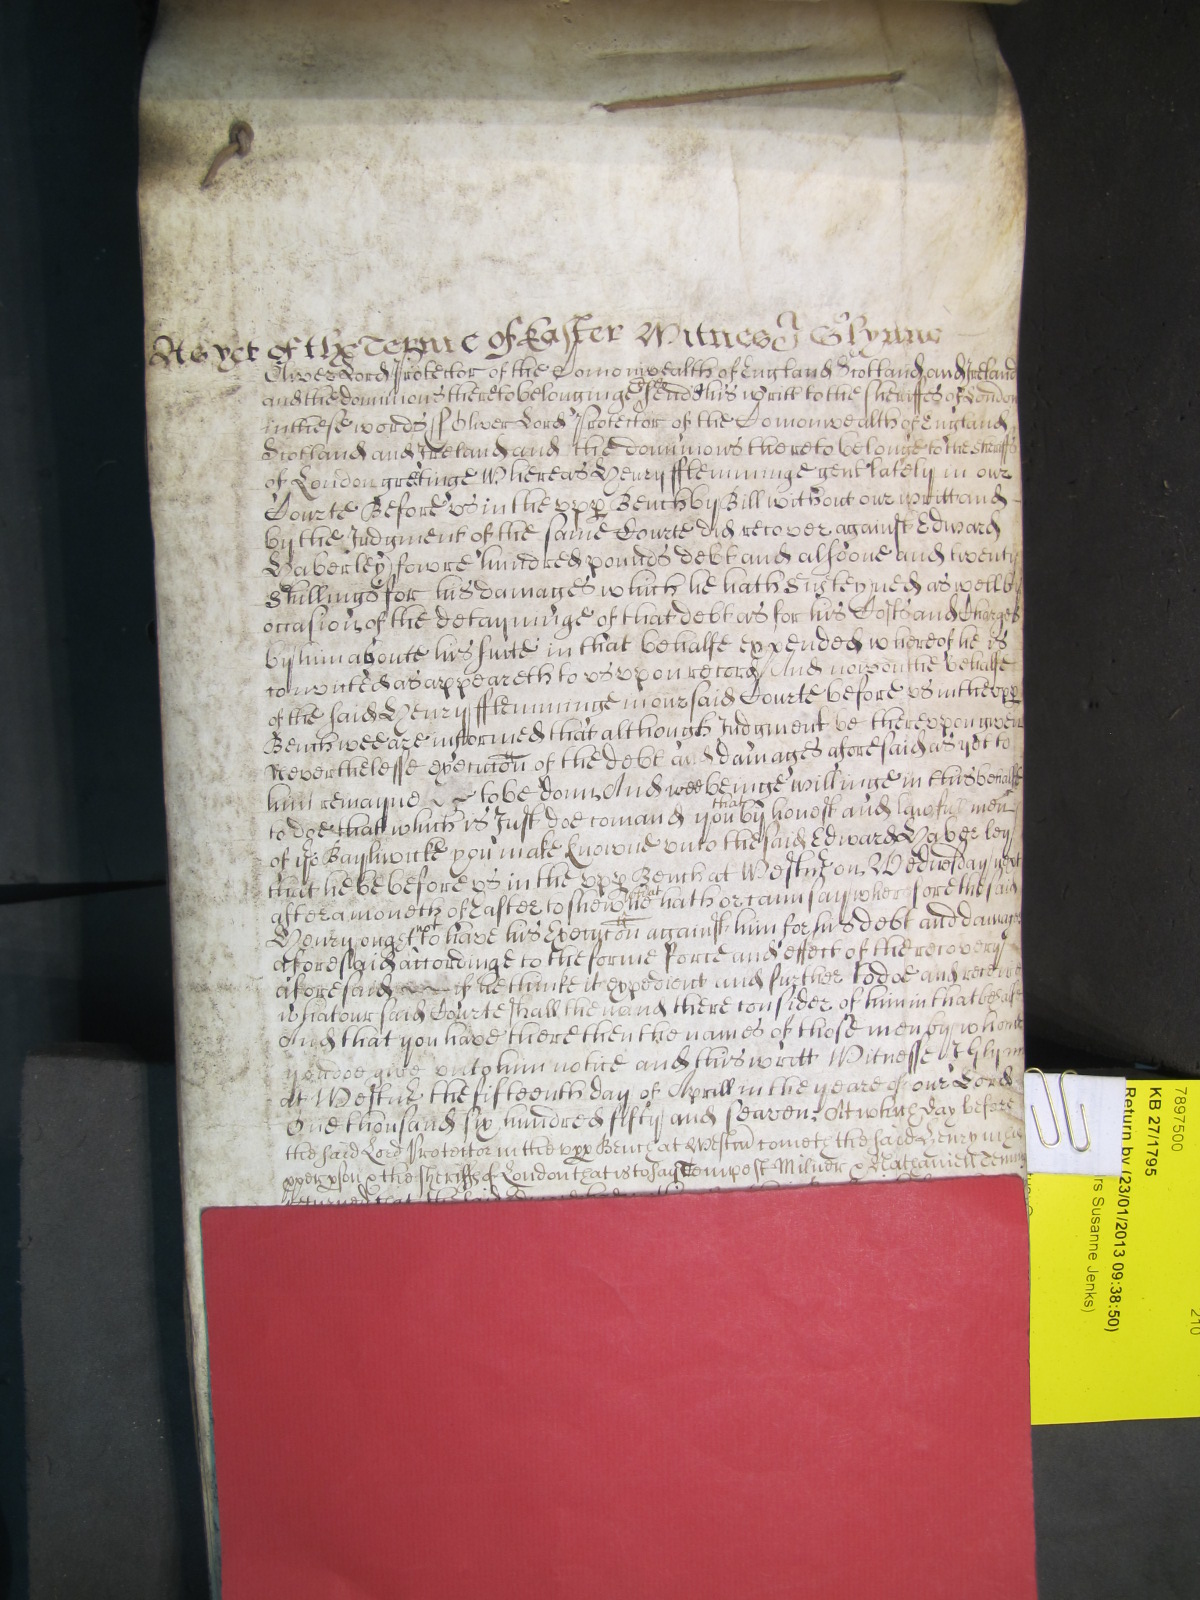 As yet of the Terme of Easter Witnes J Glynne
Oliver Lord Protector of the Comonwealth of England Scotland and Ireland
and the dominions thereto belonginge send his writt to the sheriffes of London
in these words ss Oliver Lord Protector of the Comonwealth of England
Scotland and Ireland and the dominions thereto belonge to the sheriffs
of London greetinge Whereas Henry fflemminge gent lately in our
Courte Before us in the upp Bench by Bill without our writt and
by the Judgment of the same Courte did recover against Edward
Haberley fowre hundred pounds debt and alsoe one and twenty
shillings for his damages which he hath susteyned as well by
occasion of the detayninge of that debt as for his Costs and Charges
by him aboute his suite in that behalfe expended whereof he is
convicted as appeareth to us upon record And now on the behalfe
of the said Henry fflemminge in our said Courte before us in the upp
Bench wee are informed that although Judgment be thereupon given
Neverthelesse execucon of the debt and damages aforesaid as yet to
him remayne to be donn And wee beinge willinge in this behalfe
to doe that which is Just doe comand you that by honest and lawfull men
of yr Bayliwicke you make knowne unto the said Edward Haberley
that he be before us in the upp Bench at Westmr on Wednesday next
after a moneth of Easter to shew that he hath or cann say wherefore the said
Henry ought not to have his execucon against him for his debt and damages
aforesaid accordinge to the forme force and effect of the recovery
aforesaid if he thinke it expedient and further to doe and receive
what our said Courte shall then and there consider of him in that behalfe
And that you have there then the names of those men by whome
you soe give unto him notice and this writt Witnesse J Glynne
at Westmr the fifteenth day of Aprill in the yeare of our Lord
One thousand six hundred fifty and seaven At which day before
the said Lord Protector in the upp Bench at Westmr cometh the said Henry in his
pper pson & the sheriffs of London that is to say Tempest Milner & Nathaniell
7897500
KB 27/1795
Return by (23/01/2013 09:38:50)
rs Susanne Jenks)
210